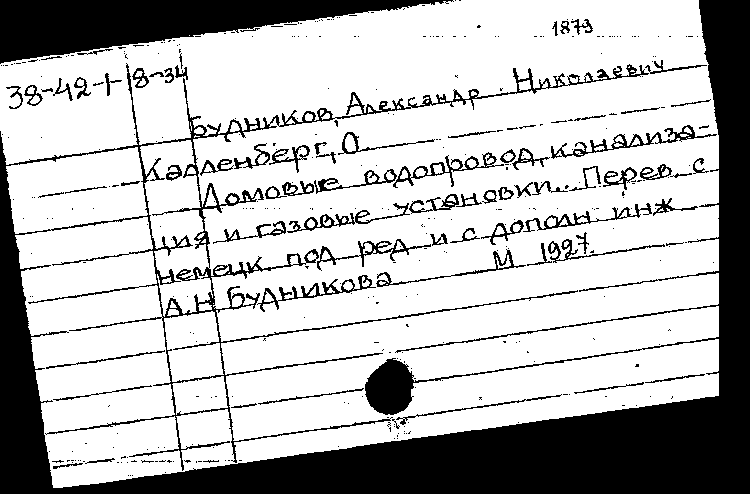 1879
38-42-1-18-34
Будников, Александр Николаевич
Калленберг, О.
Домовые водопровод, канализа-
ция и газовые установки.. Перев. с
немецк. под ред и с дополн инж
А.Н Будникова М 1927.